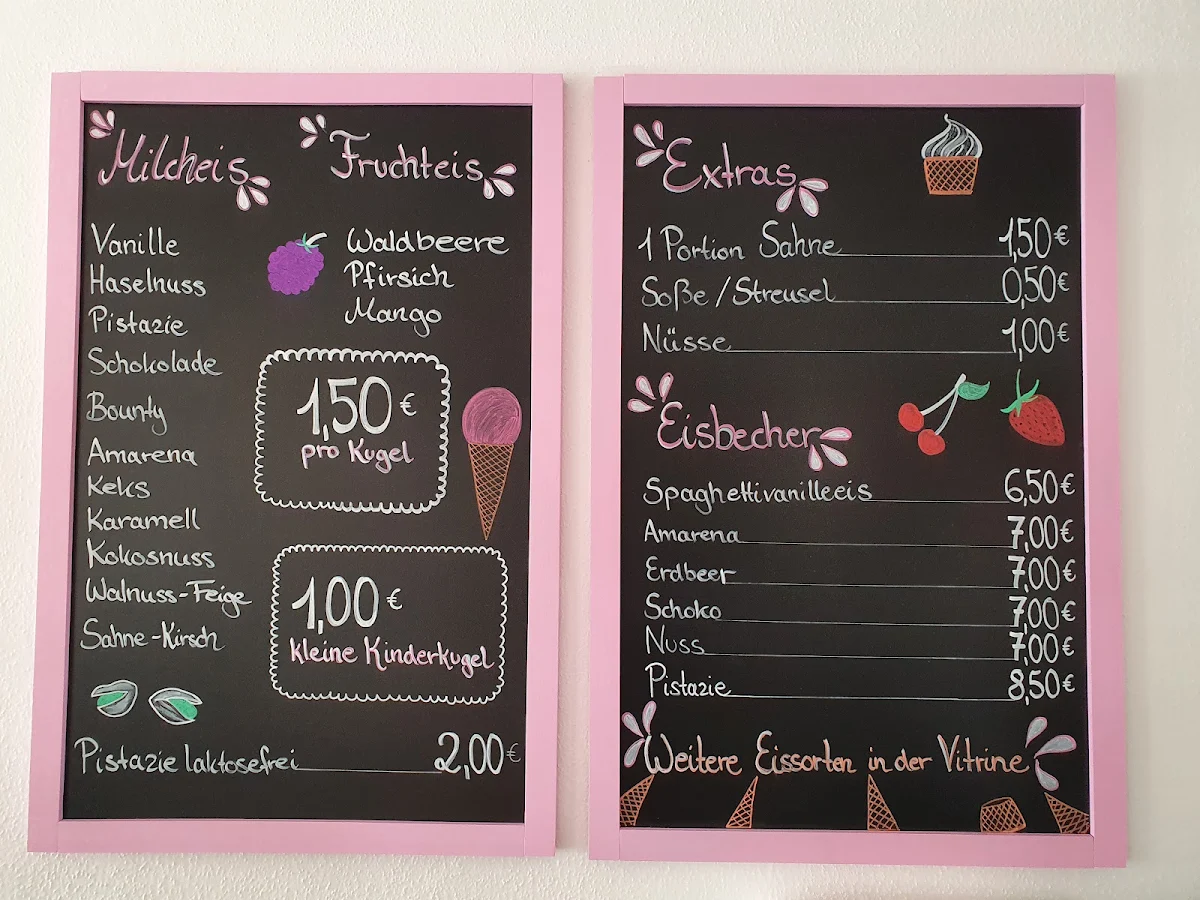 Milcheis
Vanille
Haselnuss
Pistazie
Schokolade
Bounty
Amarena
Keks
Karamell
Kokosnuss
Walnuss-Feige
Sahne-Kirsch
Fruchteis
Waldbeere
Pfirsich
Mango
1,50 €
pro Kugel
1,00 €
kleine Kinderkugel
Pistazie laktosefrei 2,00 €
Extras
1 Portion Sahne 1,50 €
Soße / Streusel 0,50 €
Nüsse 1,00 €
Eisbecher
Spaghettivanilleeis 6,50 €
Amarena 7,00 €
Erdbeer 7,00 €
Schoko 7,00 €
Nuss 7,00 €
Pistazie 8,50 €
Weitere Eissorten in der Vitrine